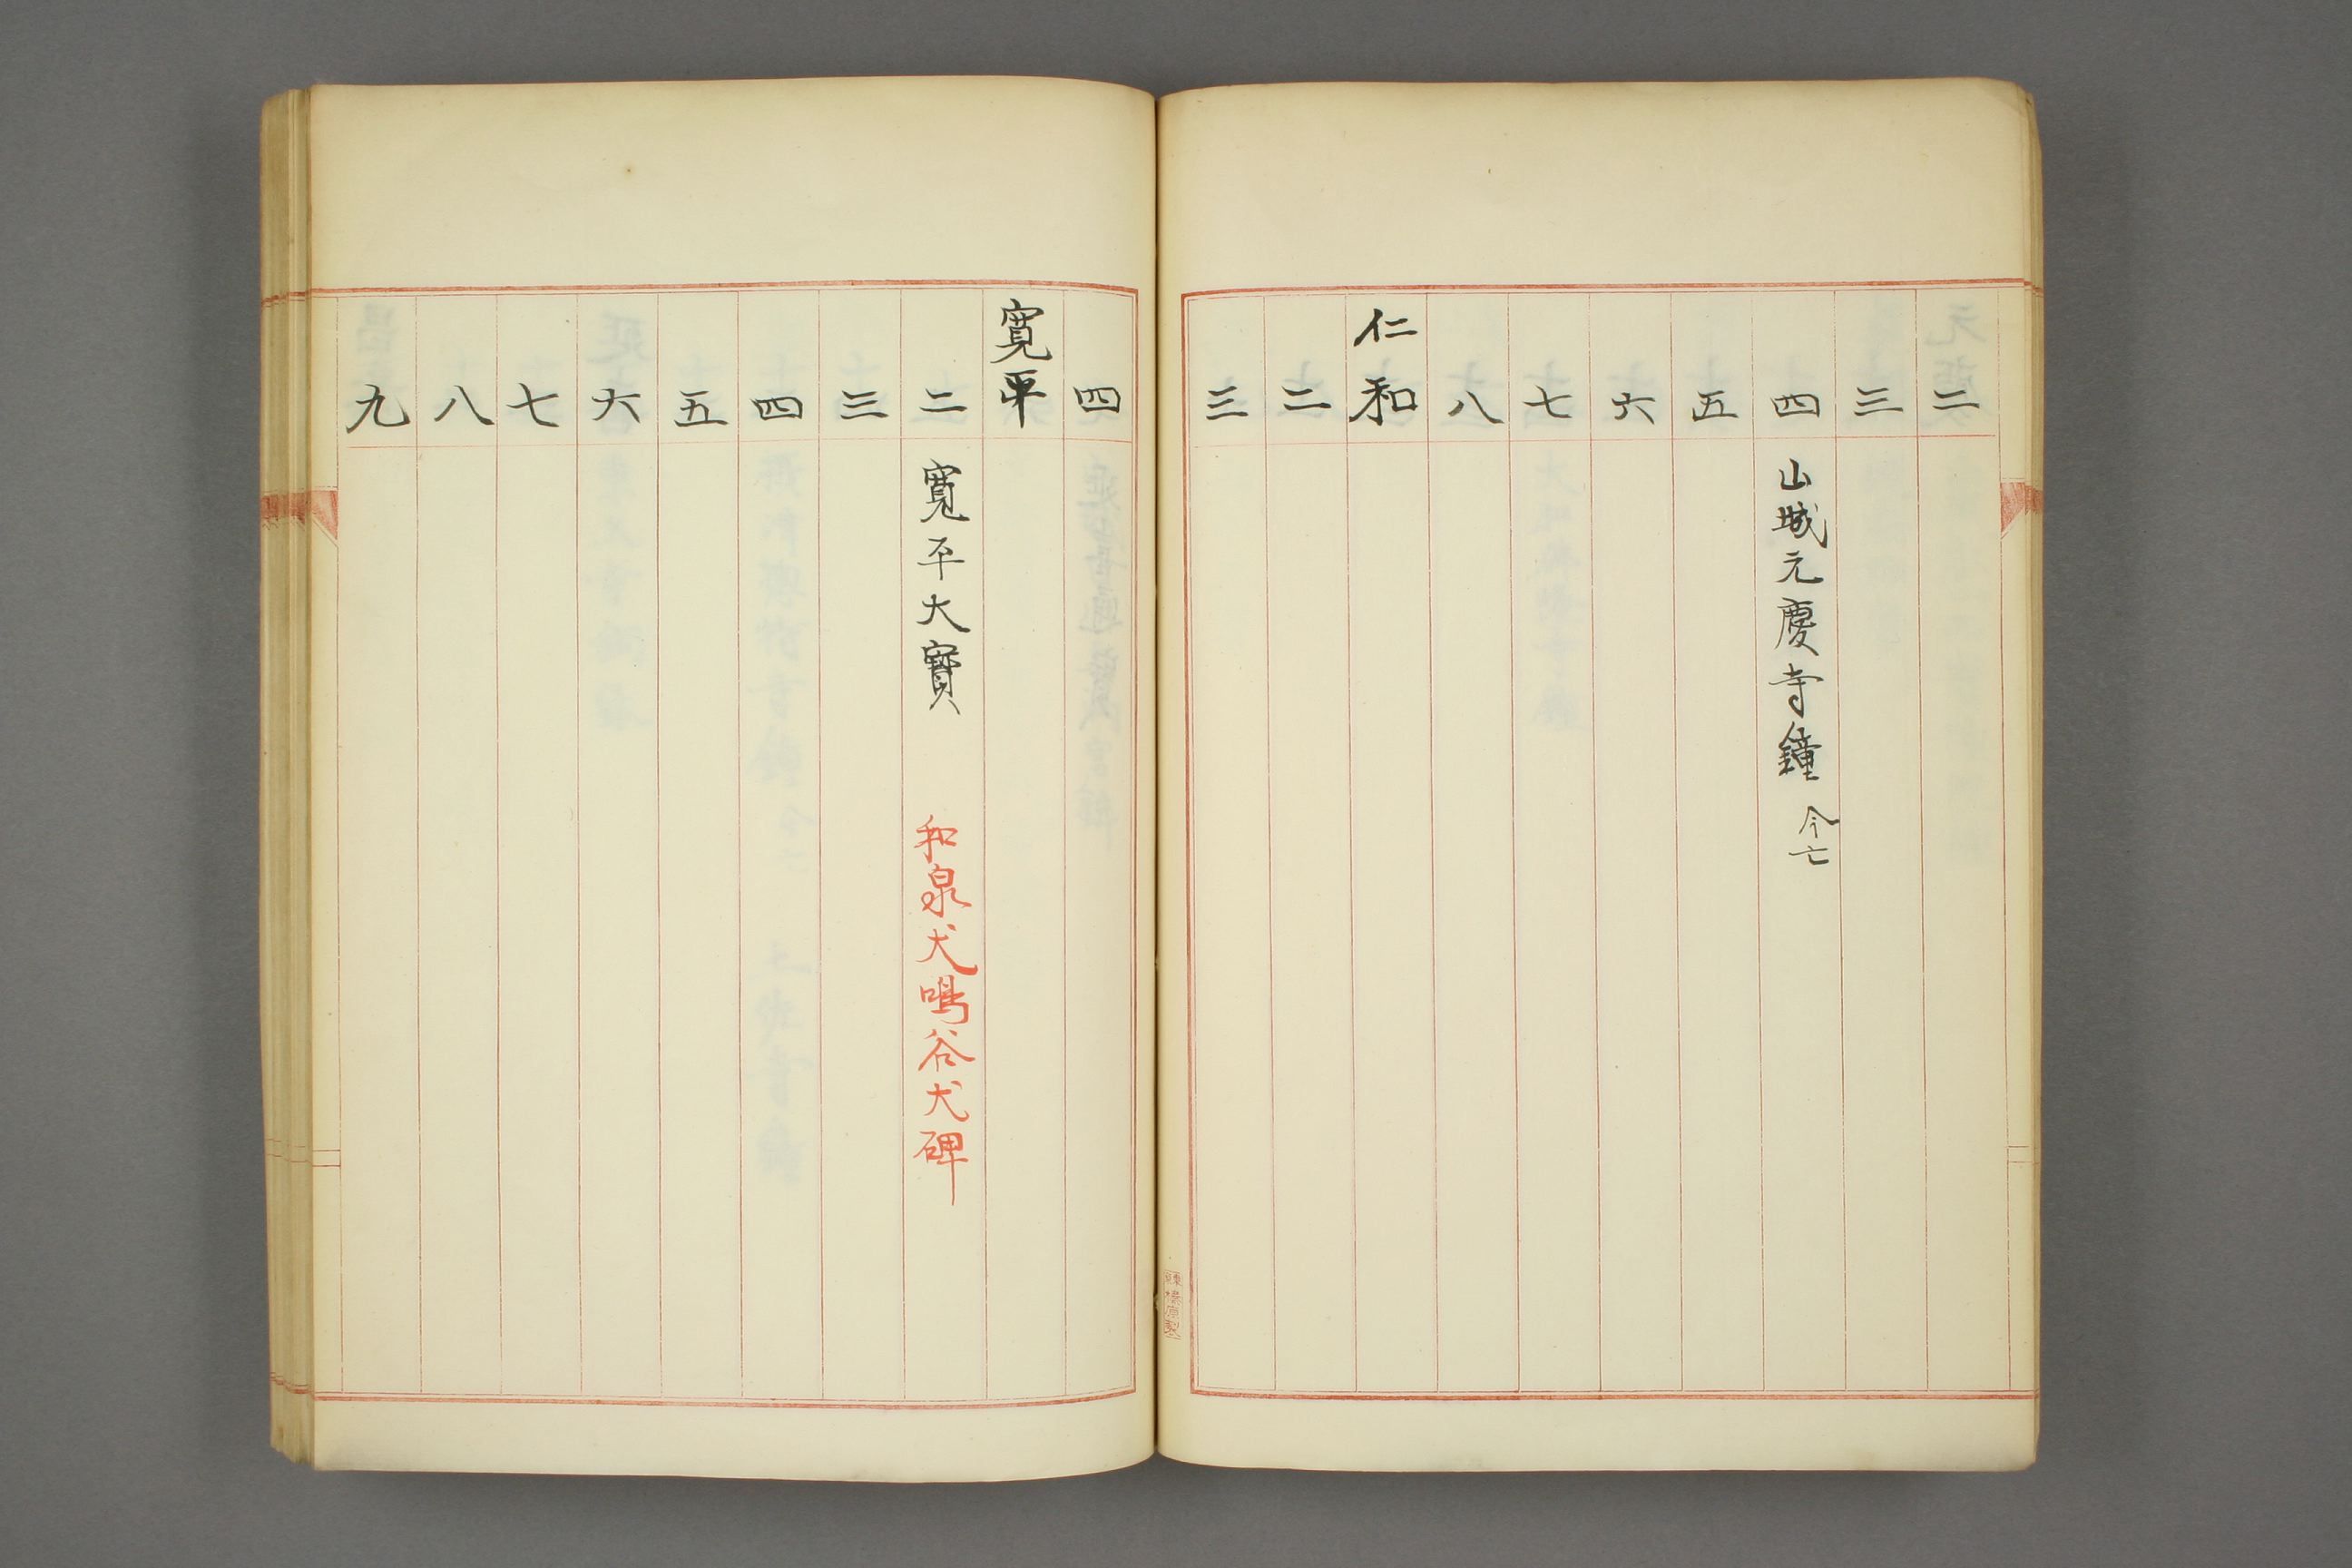 二
三
四 山城元慶寺鐘 今亡
五
六
七
八
仁和
二
三
四
寛平
二 寛平大寶 和泉犬鳴谷犬碑
三
四
五
六
七
八
九